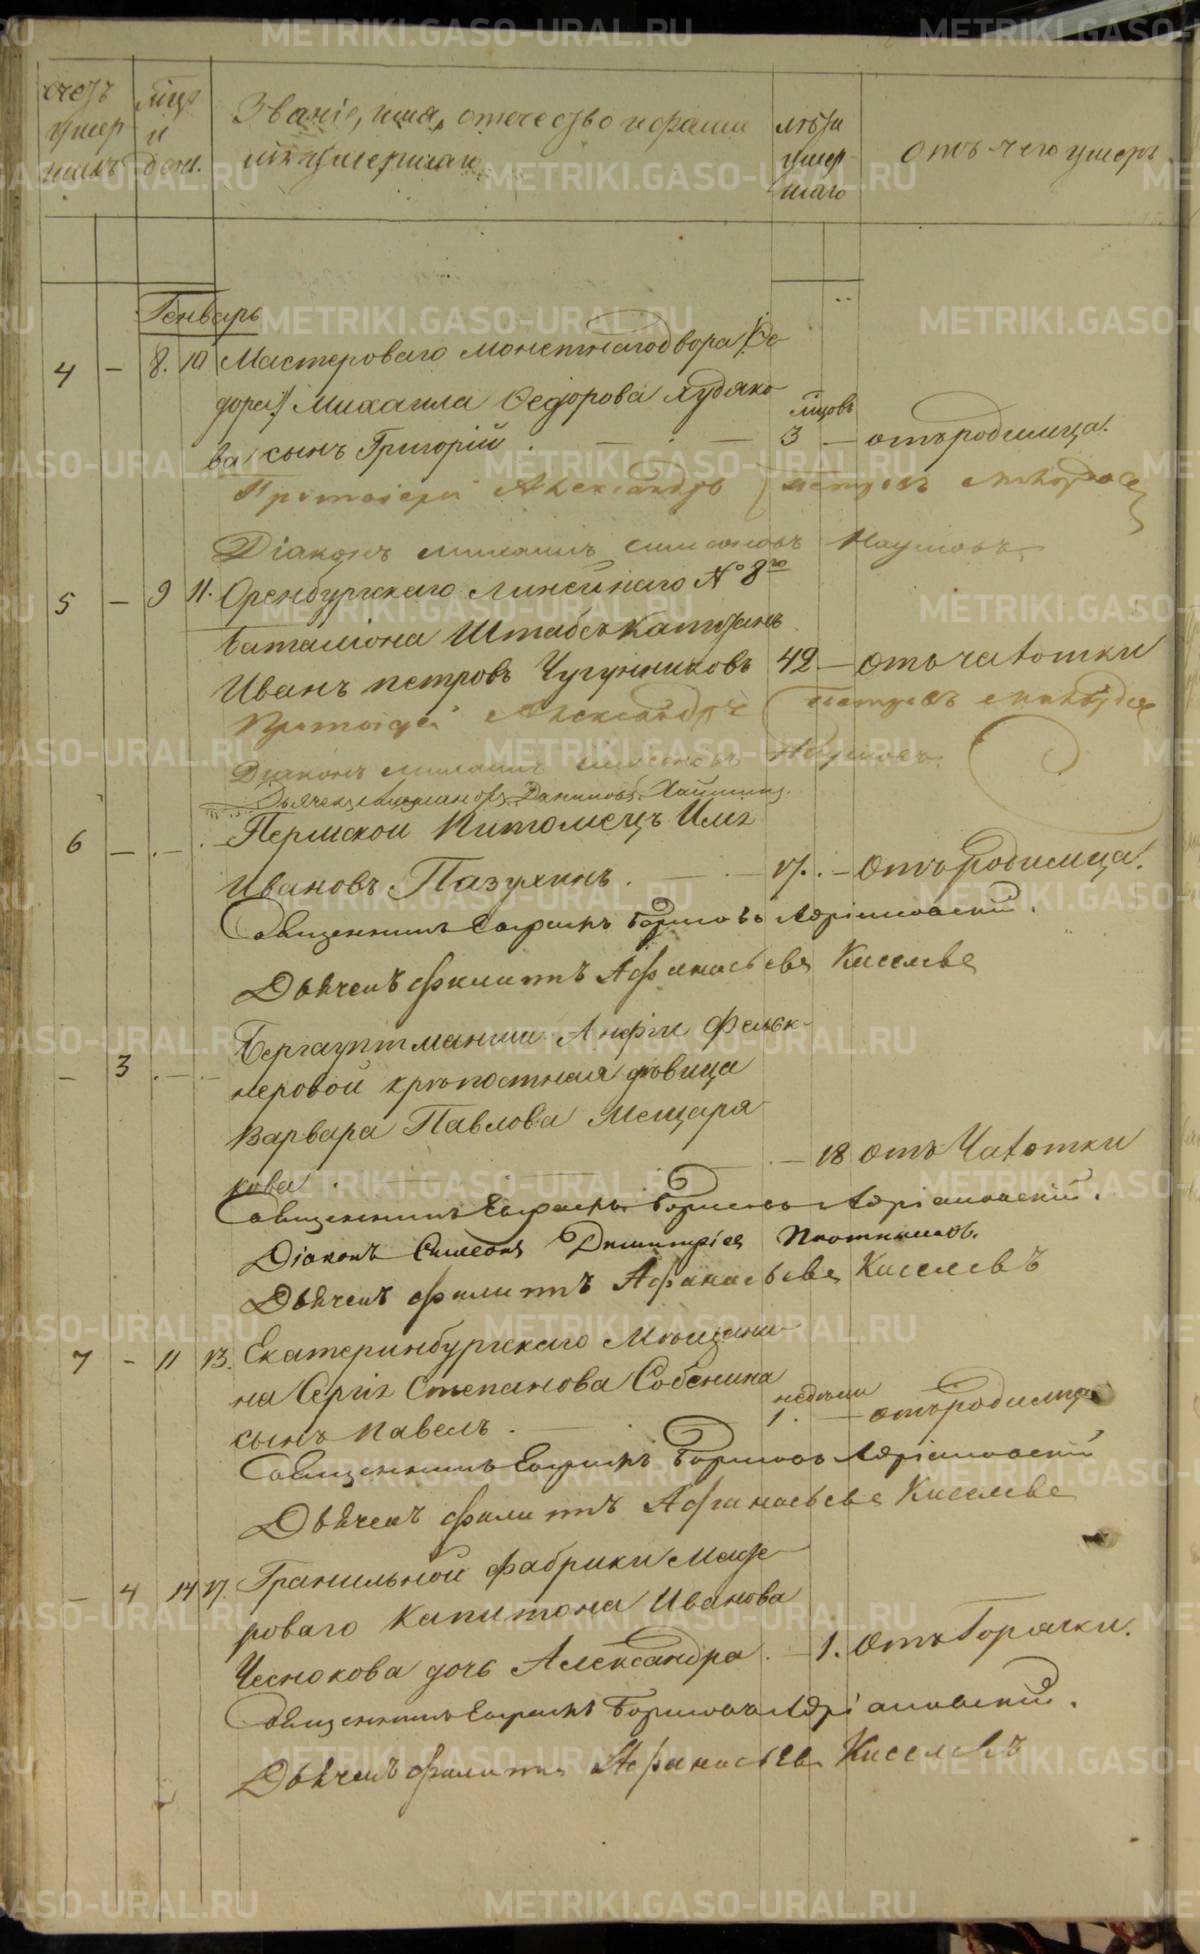 счетъ умершихъ
мѣц. и дни.
Званіе, имя, отечество и фамилія умершаго
лѣта умершаго
отъ чего умеръ
Генварь
4 — 8. 10 Мастероваго монетнаго двора
Михаила Ѳедорова Худяко-
ва сынъ Григорій мѣцовъ 3 — отъ родимца.
Протоіерей Александръ Петровъ
Діаконъ Наумовъ
5 — 9 11. Оренбургскаго линейнаго № 8го
баталіона Штабсъ Капитанъ
Иванъ Петровъ Чугунниковъ 42 — отъ чахотки
Протоіерей Александръ Петровъ
Діаконъ Наумовъ
6 — . — . Пермскои Питомецъ Илія
Ивановъ Пазухинъ. 17. — отъ родимца.
Священникъ Ефремъ Борисовъ Адріановскій.
Дьячекъ Филиппъ Афанасьевъ Киселевъ
— 3 . — . Бергауптманши Анфіи Фельк-
неровой крѣпостная дѣвица
Варвара Павлова Мещеря
кова. — 18 отъ Чахотки
Священникъ Ефремъ Борисовъ Адріановскій.
Діаконъ Симеонъ Димитріев Плотниковъ.
Дьячекъ Филиппъ Афанасьевъ Киселевъ
7 - 11 13. Екатеринбургскаго Мѣщани-
на Сергія Степанова Собенина
сынъ Павелъ. недѣли 1. — отъ родимца
Священникъ Ефремъ Борисовъ Адріановскій
Дьячекъ Филиппъ Афанасьевъ Киселевъ
— 4 14 17. Гранильной фабрики Масте-
роваго Капитона Иванова
Чеснокова дочь Александра. — 1. отъ Горячки.
Священникъ Ефремъ Борисовъ Адріановскій.
Дьячекъ Филиппъ Афанасьевъ Киселевъ
METRIKI.GASO-URAL.RU